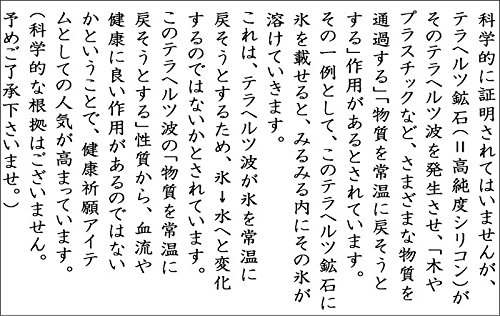 科学的に証明されてはいませんが、
テラヘルツ鉱石(＝高純度シリコン)が
そのテラヘルツ波を発生させ、「木や
プラスチックなど、さまざまな物質を
通過する」「物質を常温に戻そうと
する」作用があるとされています。
その一例として、このテラヘルツ鉱石に
氷を載せると、みるみる内にその氷が
溶けていきます。
これは、テラヘルツ波が氷を常温に
戻そうとするため、氷→水へと変化
するのではないかとされています。
このテラヘルツ波の「物質を常温に
戻そうとする」性質から、血流や
健康に良い作用があるのではない
かということで、健康祈願アイテ
ムとしての人気が高まっています。
(科学的な根拠はございません。
予めご了承下さいませ。)